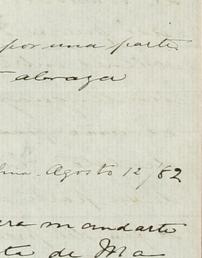 por una parte
abraza
Agosto 12/82
mandarte
de Ma